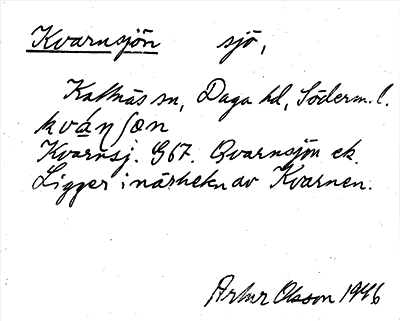 Kvarnsjön sjö,
Kattnäs sn, Daga hd, Söderm. l.
kvánʃøn
Kvarnsj. G67. Qvarnsjön ek.
Ligger i närheten av Kvarnen.
Artur Olsson 1946